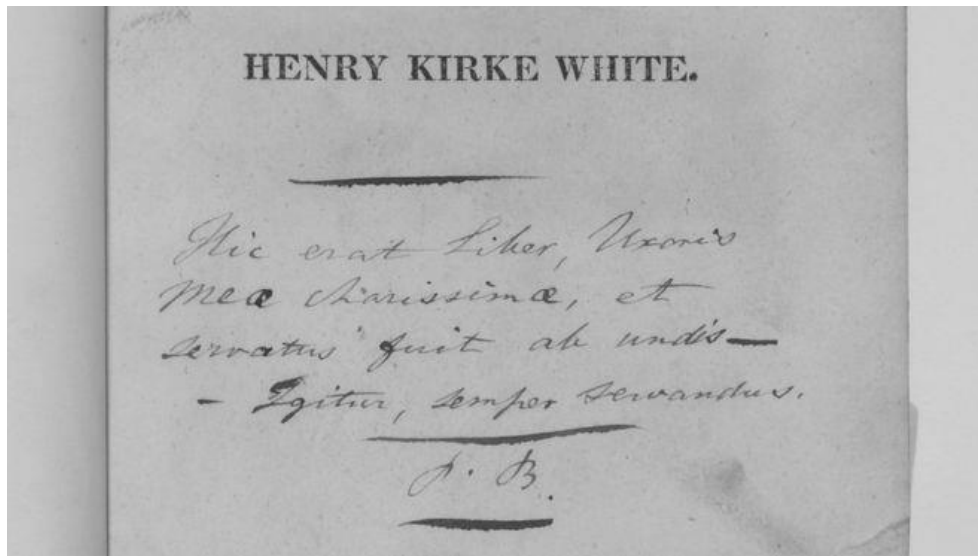 HENRY KIRKE WHITE.
Hic erat Liber, Uxoris
Meæ charissimæ, et
servatus fuit ab undis—
- Igitur, semper servandus.
P. B.